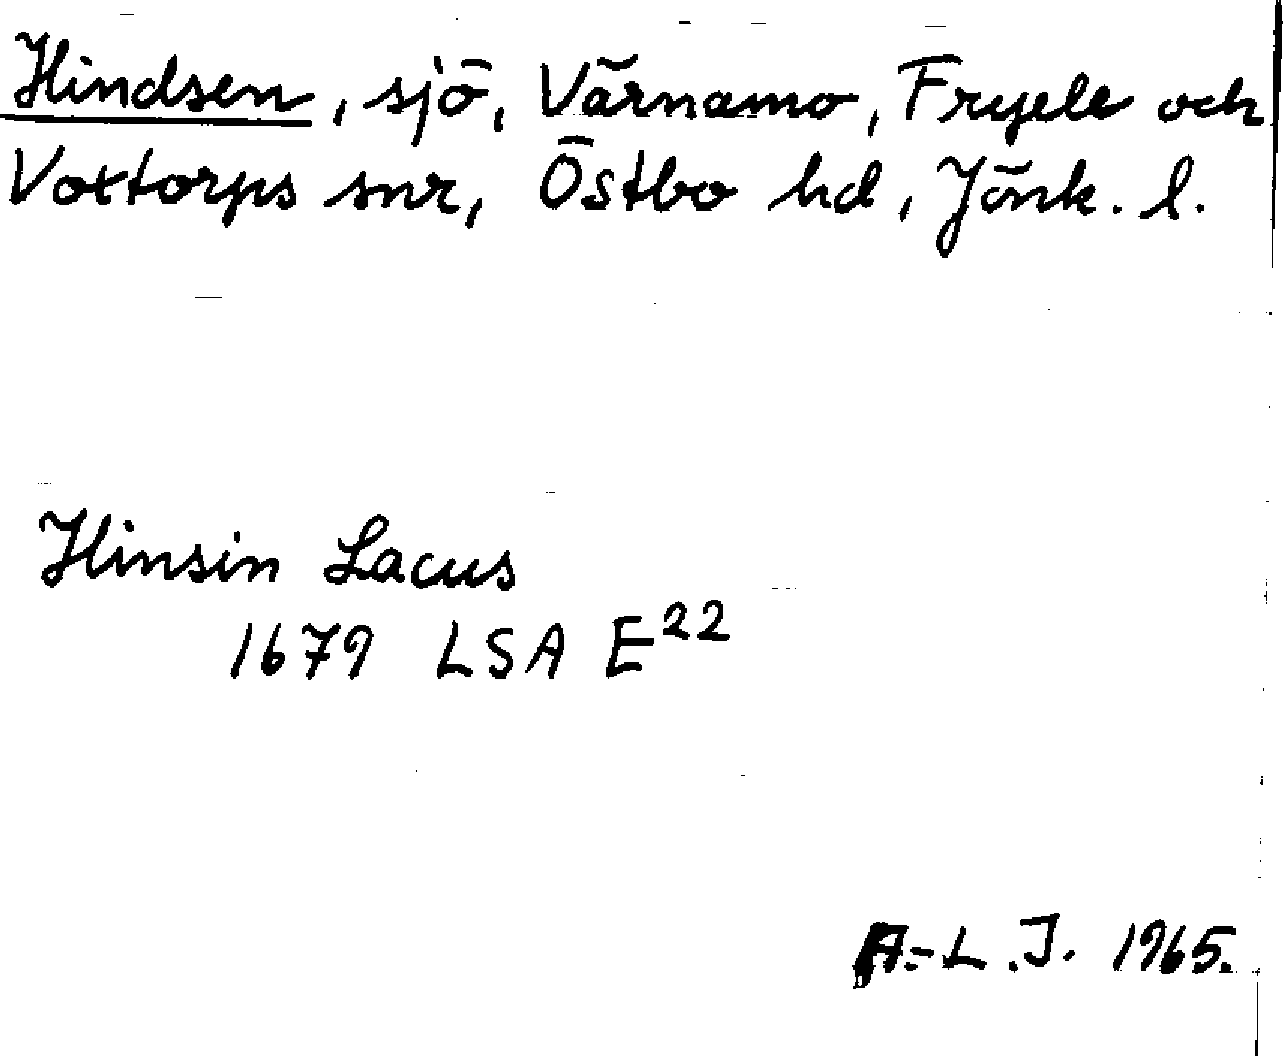 Hindsen, sjö, Värnamo, Fryele och
Voxtorps snr, Östbo hd, Jönk. l.
Hinsin Lacus
1679 LSA E22
A.-L.J. 1965.